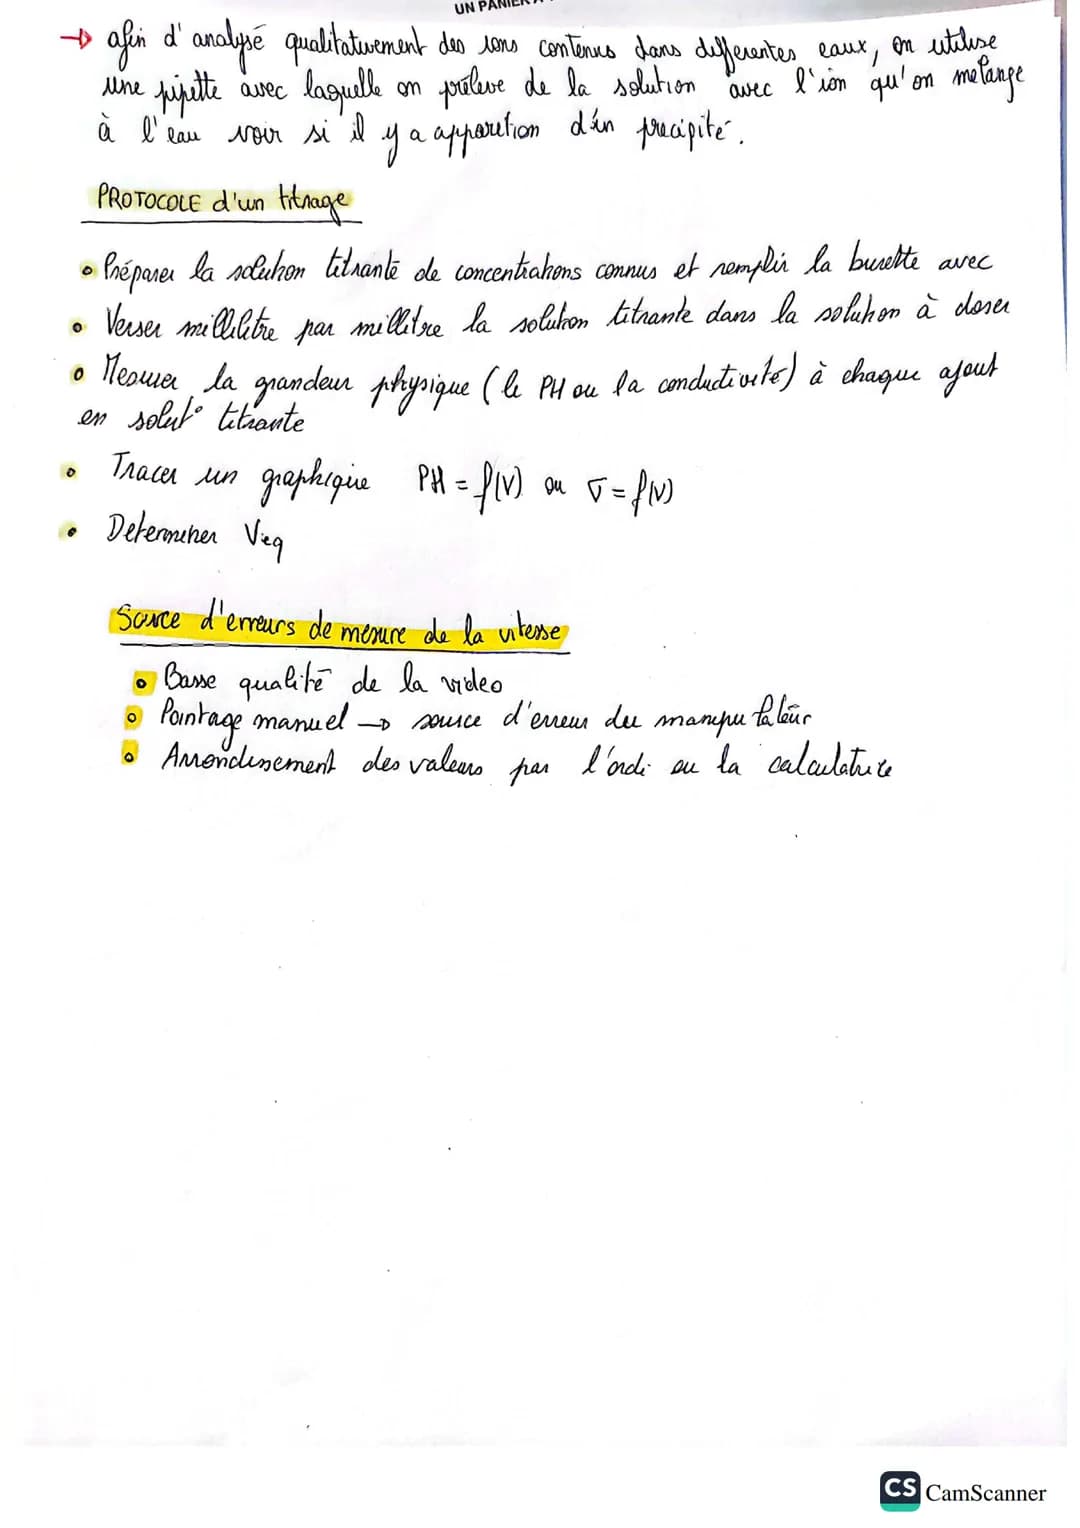 UN PANIER
→ afin d'analysé qualitativement des ions contenus dans differentes eaux, on utilise
une pipette avec laquelle on prélève de la solution avec l'ion qu'on mélange
à l'eau voir si il y a apparution d'un precipité.
PROTOCOLE d'un titrage
• Préparer la solution titrante de concentrations connus et remplir la burette avec
• Verser millilitre par millitre la solution titrante dans la solution à doser
• Mesurer la grandeur physique (le PH ou la conductivité) à chaque ajout
en solut° titrante
• Tracer un graphique PH = f(V) ou σ = f(V)
• Determiner Veq
Source d'erreurs de mesure de la vitesse
• Basse qualité de la video
• Pointage manuel → source d'erreur du manipulateur
• Arrondissement des valeurs par l'ordi ou la calculatrice
CS CamScanner